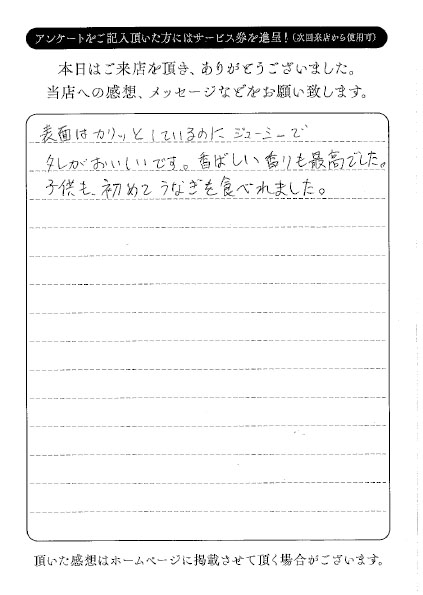 アンケートをご記入頂いた方にはサービス券を進呈！(次回来店から使用可)
本日はご来店を頂き、ありがとうございました。
当店への感想、メッセージなどをお願い致します。
表面はカリッとしているのに ジューシーで
タレがおいしいです。香ばしい香りも最高でした。
子供も、初めてうなぎを食べれました。
頂いた感想はホームページに掲載させて頂く場合がございます。